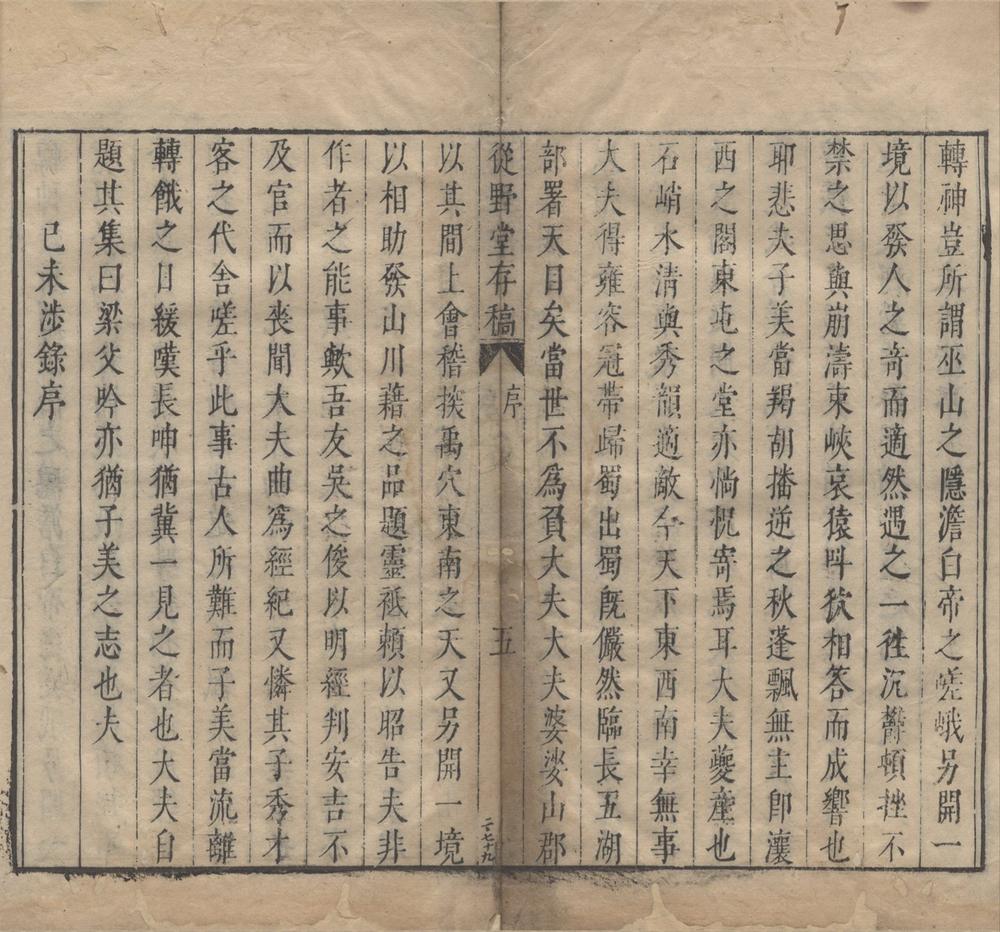 轉神豈所謂巫山之隱澹白帝之嵯峨另開一
境以發人之奇而適然遇之一往沉鬱頓挫不
禁之思與崩濤束峽哀猿呌狖相答而成響也
耶悲夫子美當羯胡播逆之秋蓬飄無主卽瀼
西之閣東屯之堂亦惝怳寄焉耳大夫夔產也
石峭水清與秀韻適敵今天下東西南幸無事
大夫得雍容冠帶歸蜀出蜀旣儼然臨長五湖
部署天目矣當世不為負大夫大夫婆娑山郡
從野堂存稿 序 五
二七十九
以其間上會稽探禹穴東南之天又另開一境
以相助發山川藉之品題靈祗賴以昭告夫非
作者之能事歟吾友吳之俊以明經判安吉不
及官而以喪聞大夫曲為經紀又憐其子秀才
客之代舍嗟乎此事古人所難而子美當流離
轉餓之日緩嘆長呻猶冀一見之者也大夫自
題其集曰梁父吟亦猶子美之志也夫
已未涉錄序